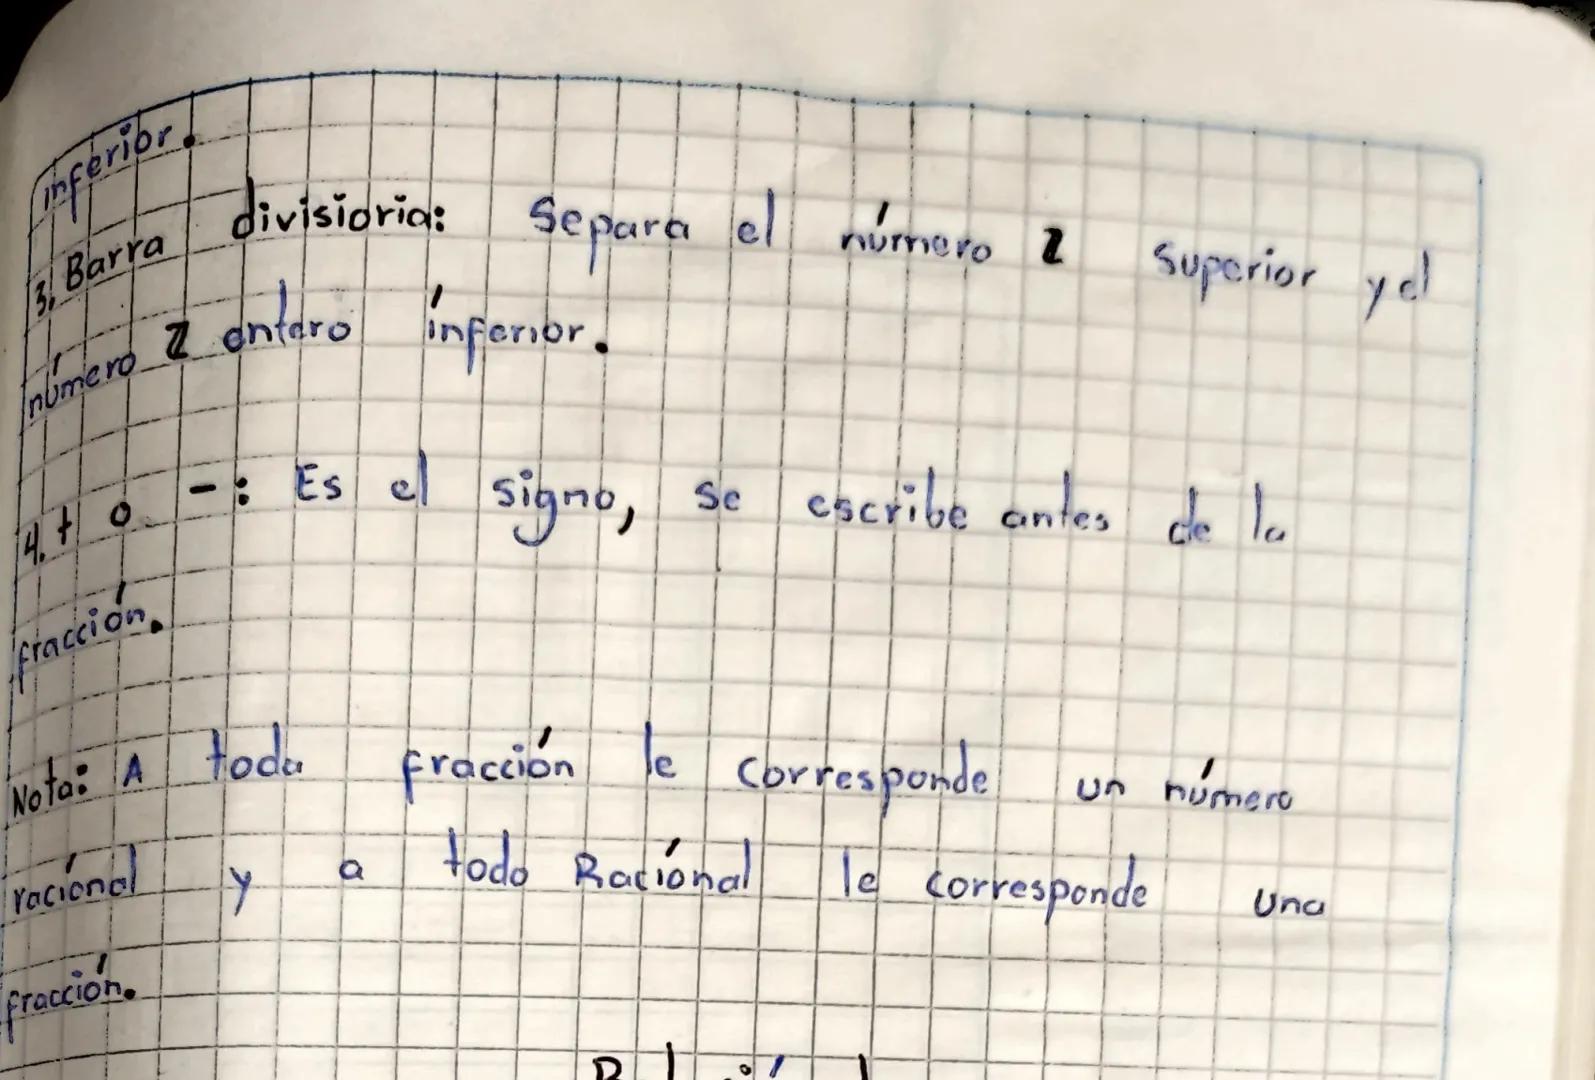 inferior.
3. Barra divisioria: Separa el número Z Superior y el
número Z entero inferior.
4. + o -: Es el signo, se escribe antes de la
fracción.
Nota: A toda fracción le corresponde un número
racional y a todo Racional le corresponde una
fracción.